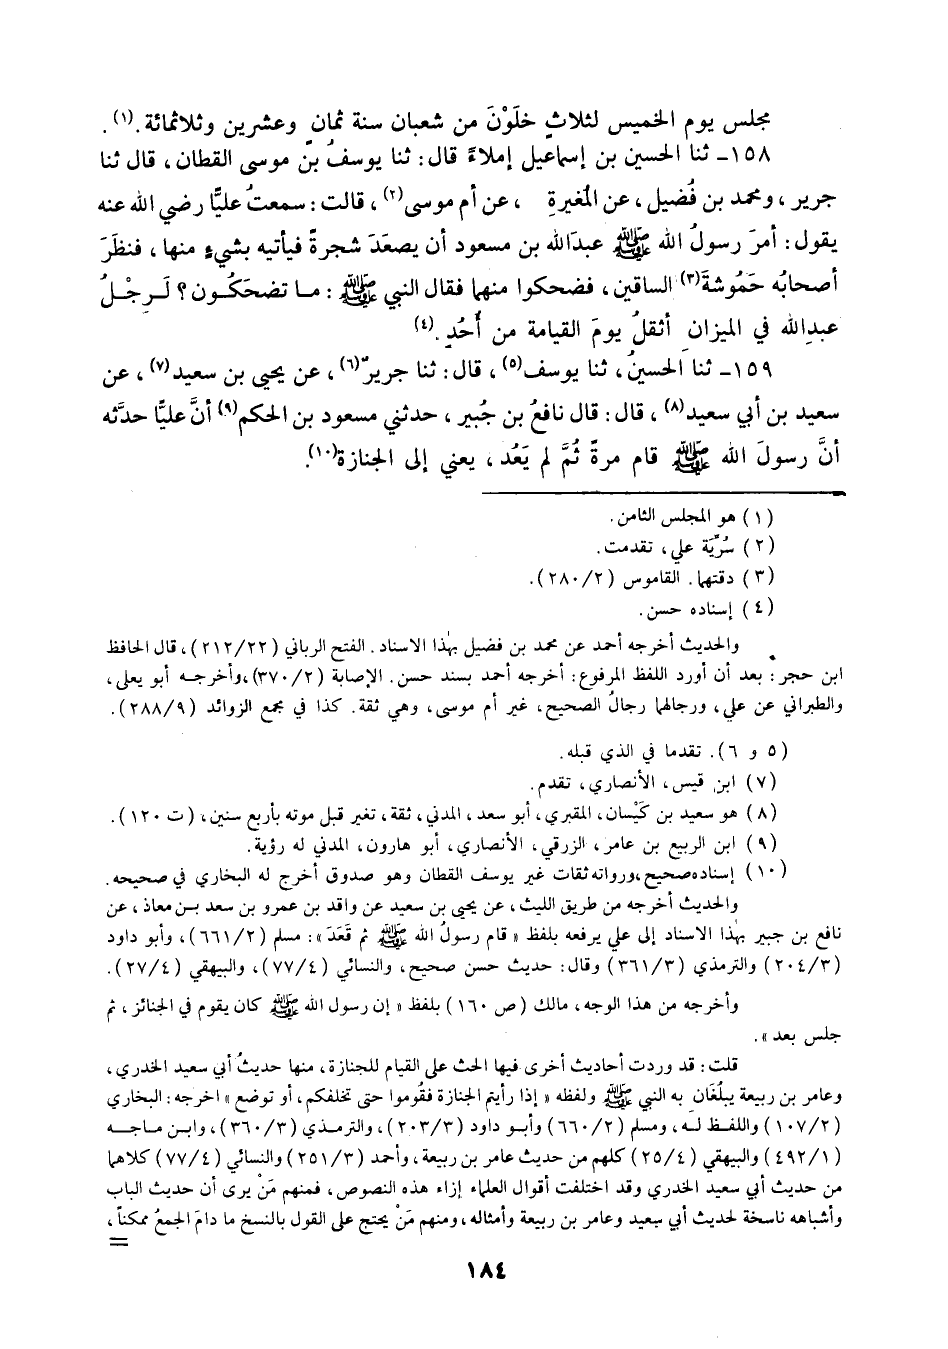 مجلس يوم الخميس لثلاثٍ خلَوْنَ من شعبان سنة ثمانٍ وعشرين وثلاثمائة.(١).
١٥٨ـ ثنا الحسين بن إسماعيل إملاءً قال: ثنا يوسفُ بن موسى القطان، قال ثنا
جرير، ومحمد بن فُضيل، عن المُغيرةِ ، عن أم موسى(٢)، قالت: سمعتُ عليًّا رضي الله عنه
يقول: أمرَ رسولُ الله ﷺ عبدَالله بن مسعود أن يصعَدَ شجرةً فيأتيه بشيءٍ منها، فنظَرَ
أصحابُه حَمُوشةَ(٣) الساقين، فضحكوا منهما فقال النبي ﷺ: ما تضحَكُون؟ لَرِجْلُ
عبدِالله في الميزان أثقلُ يومَ القيامة من أُحُدٍ.(٤)
١٥٩ـ ثنا الحسينُ، ثنا يوسف(٥)، قال: ثنا جريرٌ(٦)، عن يحيى بن سعيد(٧)، عن
سعيد بن أبي سعيد(٨)، قال: قال نافعُ بن جُبير، حدثني مسعود بن الحكم(٩) أنَّ عليًّا حدَّثه
أنَّ رسولَ الله ﷺ قام مرةً ثُمَّ لم يَعُد، يعني إلى الجنازة(١٠).
(١) هو المجلس الثامن.
(٢) سُرِّيَة علي، تقدمت.
(٣) دقتهما. القاموس (٢/٢٨٠).
(٤) إسناده حسن.
والحديث أخرجه أحمد عن محمد بن فضيل بهٰذا الاسناد. الفتح الرباني (٢٢/٢١٢)، قال الحافظ
ابن حجر: بعد أن أورد اللفظ المرفوع: أخرجه أحمد بسند حسن. الإصابة (٢/٣٧٠)، وأخرجه أبو يعلى،
والطبراني عن علي، ورجالهما رجالُ الصحيح، غير أم موسى، وهي ثقة. كذا في مجمع الزوائد (٩/٢٨٨).
(٥ و ٦). تقدما في الذي قبله.
(٧) ابن قيس، الأنصاري، تقدم.
(٨) هو سعيد بن كَيْسان، المقبري، أبو سعد، المدني، ثقة، تغير قبل موته بأربع سنين، (ت ١٢٠).
(٩) ابن الربيع بن عامر، الزرقي، الأنصاري، أبو هارون، المدني له رؤية.
(١٠) إسناده صحيح، ورواته ثقات غير يوسف القطان وهو صدوق أخرج له البخاري في صحيحه.
والحديث أخرجه من طريق الليث، عن يحيى بن سعيد عن واقد بن عمرو بن سعد بن معاذ، عن
نافع بن جبير بهٰذا الاسناد إلى علي يرفعه بلفظ «قام رسولُ الله ﷺ ثم قَعَدَ»: مسلم (٢/٦٦١)، وأبو داود
(٣/٢٠٤) والترمذي (٣/٣٦١) وقال: حديث حسن صحيح، والنسائي (٤/٧٧)، والبيهقي (٤/٢٧).
وأخرجه من هذا الوجه، مالك (ص ١٦٠) بلفظ «إن رسول الله ﷺ كان يقوم في الجنائز، ثم
جلس بعد».
قلت: قد وردت أحاديث أخرى فيها الحث على القيام للجنازة، منها حديثُ أبي سعيد الخدري،
وعامر بن ربيعة يبلُغَان به النبي ﷺ ولفظه «إذا رأيتم الجنازة فقُوموا حتى تخلفكم، أو توضع» اخرجه: البخاري
(٢/١٠٧) واللفظ له، ومسلم (٢/٦٦٠) وأبو داود (٣/٢٠٣)، والترمذي (٣/٣٦٠)، وابن ماجه
(١/٤٩٢) والبيهقي (٤/٢٥) كلهم من حديث عامر بن ربيعة، وأحمد (٣/٢٥١) والنسائي (٤/٧٧) كلاهما
من حديث أبي سعيد الخدري وقد اختلفت أقوال العلماء إزاء هذه النصوص، فمنهم مَنْ يرى أن حديث الباب
وأشباهه ناسخة لحديث أبي سعيد وعامر بن ربيعة وأمثاله، ومنهم مَنْ يحتج على القول بالنسخ ما دامَ الجمعُ ممكناً،
=
١٨٤